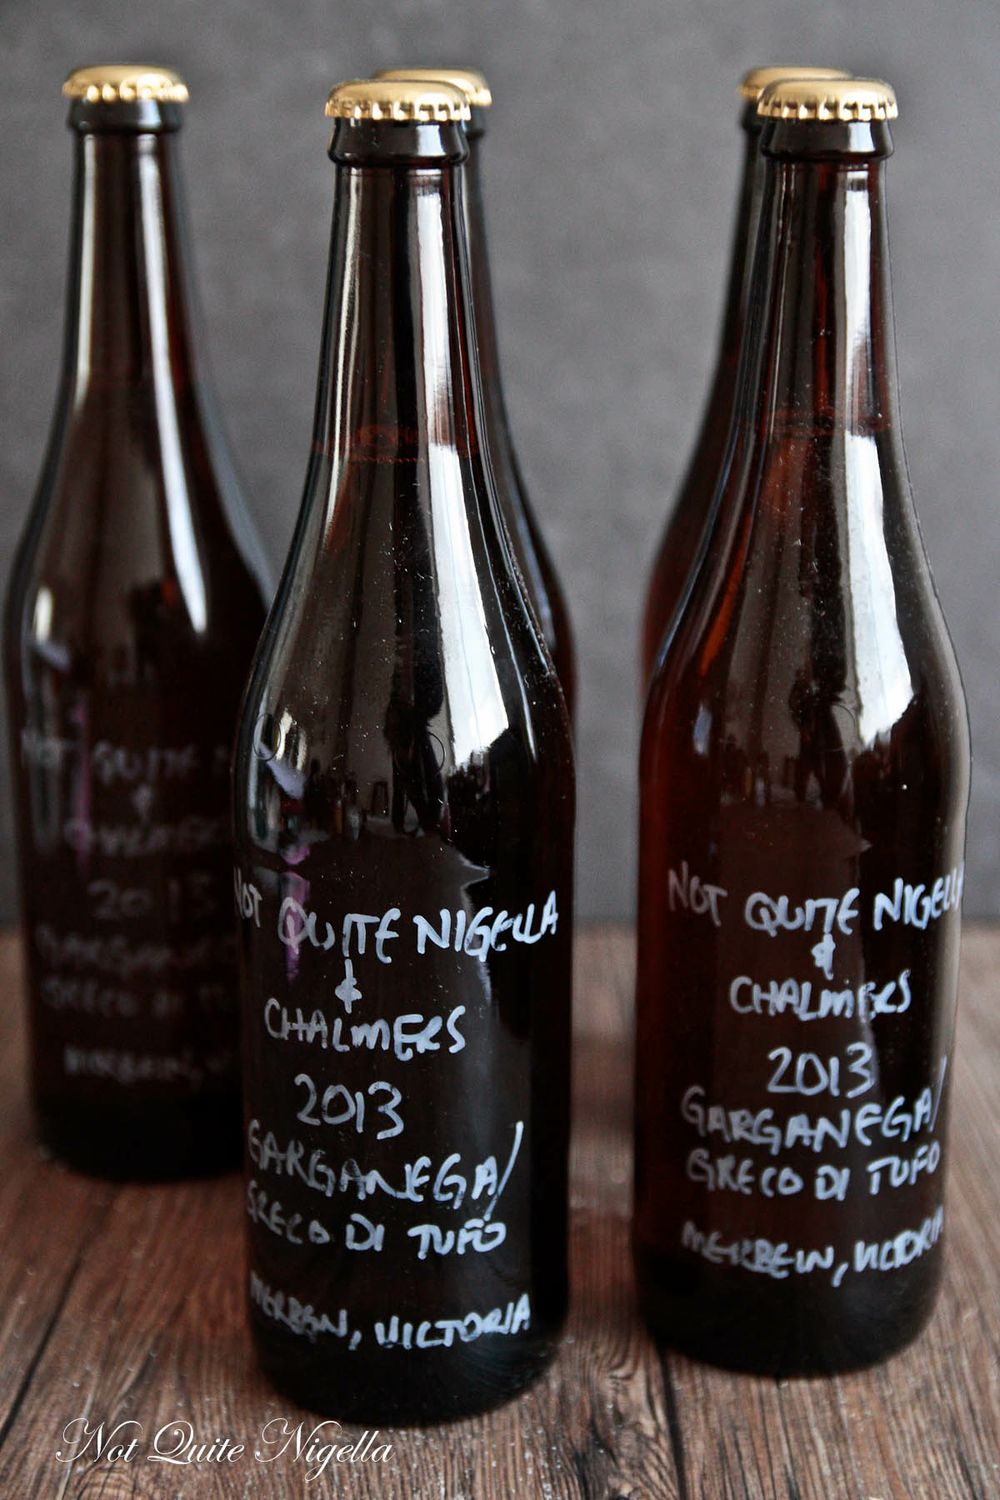 NOT QUITE N
&
CHALMERS
2013
NOT QUITE NIGELLA
&
CHALMERS
2013
GARGANEGA/
GRECO DI TUFO
MERBEIN, VICTORIA
NOT QUITE NIGELL
&
CHALMERS
2013
GARGANEGA/
GRECO DI TUFO
MERBEIN, VICTORIA
Not Quite Nigella